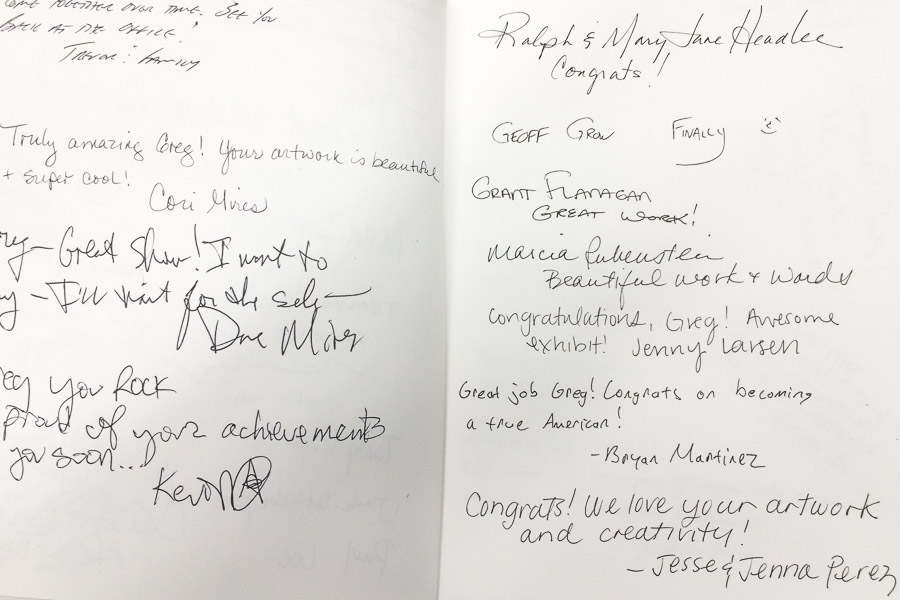 come together over time. See you
back at the office!
Trevor & Family
Truly amazing Greg! Your artwork is beautiful
+ super cool!
Cori Mires
Great show! I want to
I'll wait for the sale
Dave Mires
you Rock
proud of your achievements
you soon...
Kevin
Ralph & Mary Jane Headlee
Congrats!
Geoff Grow Finally
Grant Flanagan
Great work!
Marcia Rubenstein
Beautiful work + words
Congratulations, Greg! Awesome
exhibit! Jenny Larsen
Great job Greg! Congrats on becoming
a true American!
-Bryan Martinez
Congrats! We love your artwork
and creativity!
- Jesse & Jenna Perez